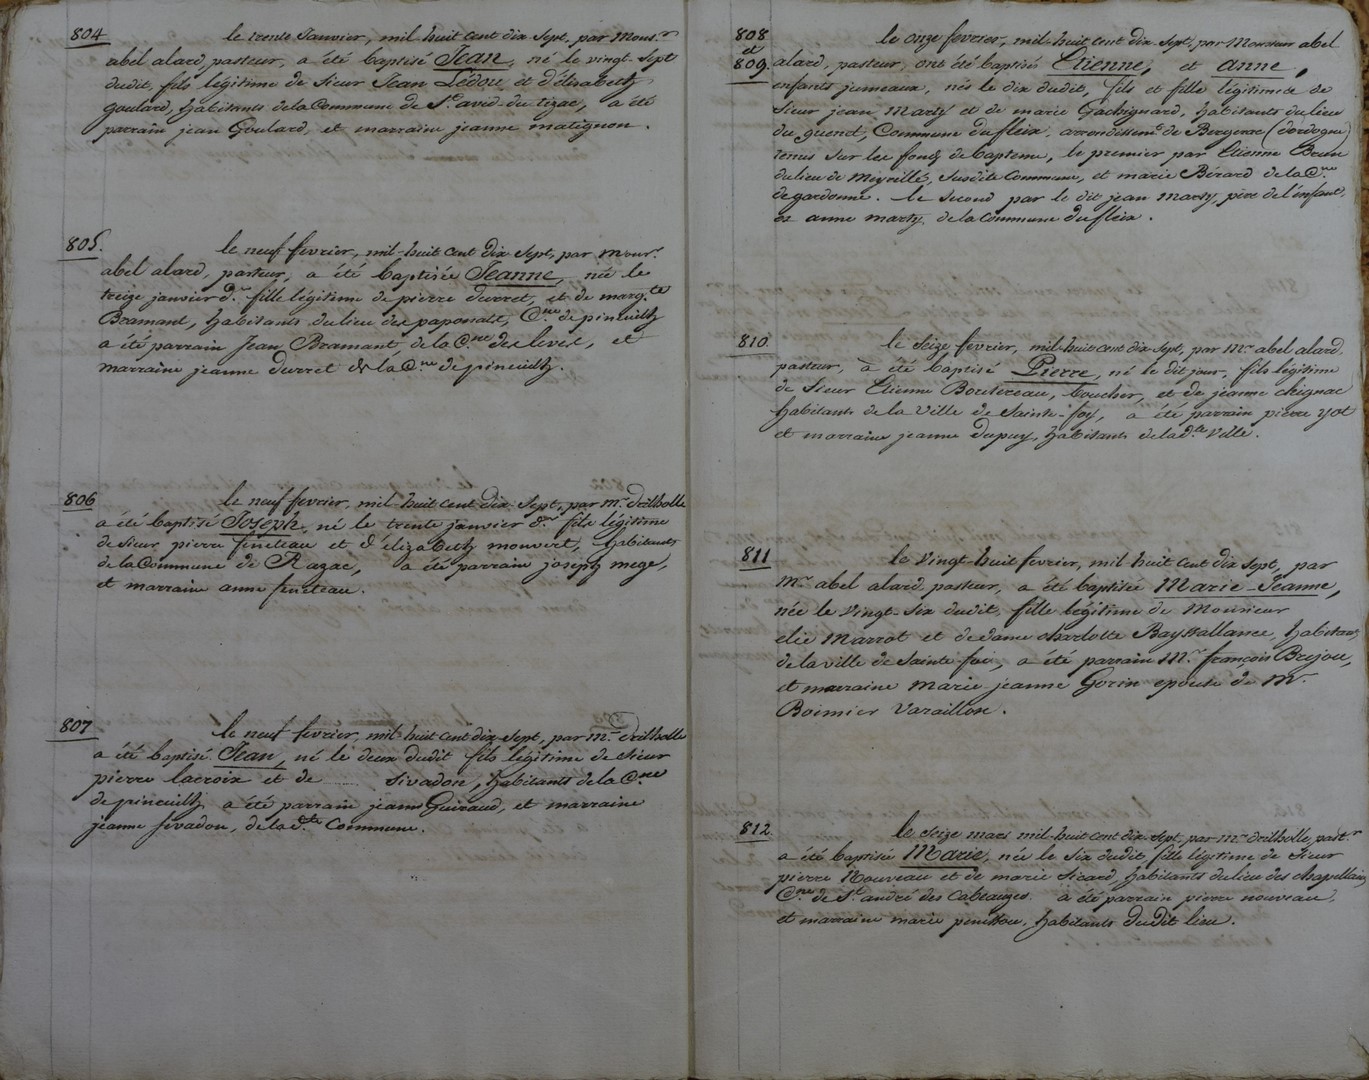 804
le trente Janvier, mil-huit cent dix sept, par Mons.r
abel alard, pasteur, a été baptisé Jean, né le vingt-sept
dudit, fils légitime de Sieur Jean Lédou et d'élisabeth
goulard, habitants de la Commune de St. avid-du tizac, a été
parrain jean Goulard, et marraine jeanne matignon.
805.
le neuf fevrier, mil-huit cent dix sept, par mour.
abel alard, pasteur, a été baptisée Jeanne, née le
treize janvier d.r fille légitime de pierre durret, et de marg.te
Bramant, habitants du lieu des, C.ne de pineuilh
a été parrain Jean Bramant de la C.ne des leves, et
marraine jeanne durret de la C.ne de pineuilh.
806
le neuf fevrier, mil-huit cent dix-sept, par m.r drilholle
a été baptisé Joseph, né le trente janvier d.r fils légitime
de sieur pierre feneteau et d'élizabeth monvert, habitants
de la Commune de Razac, a été parrain joseph mege,
et marraine anne feneteau.
807
le neuf fevrier, mil-huit cent dix-sept, par m.r drilholle
a été baptisé Jean, né le deux dudit fils légitime de Sieur
pierre lacroix et de sivadon, habitants de la C.ne
de pineuilh a été parrain jean Guiraud, et marraine
jeanne sivadon, de la d.te Commune.
808
et
809.
le onze fevrier, mil-huit cent dix-sept, par Monsieur abel
alard, pasteur, ont été baptisé Etienne, et anne,
enfants jumeaux, nés le dix dudit, fils et fille légitime de
Sieur jean Marty et de marie Gachignard, habitants du lieu
du, Commune du fleix, arrondissem.t de Bergerac (dordogne)
tenus sur les fonds de bapteme, le premier par Etienne Brun
du lieu de Meyrillé, susdite Commune, et marie Bérard de la C.ne
de gardonne. le second par le dit jean Marty, père de l'enfant,
et anne marty de la Commune du fleix.
810.
le seize fevrier, mil-huit cent dix-sept, par M.r abel alard,
pasteur, à été baptisé Pierre, né le dit jour, fils légitime
de Sieur Etienne Boutereau, boucher, et de jeanne chignac
habitants de la Ville de Sainte-foy, a été parrain pierre yot
et marraine jeanne dupuy, habitants de la d.te Ville.
811
le vingt-huit fevrier, mil huit cent dix sept, par
M.r abel alard pasteur, a été baptisée Marie-Jeanne,
née le vingt-six dudit, fille légitime de Monsieur
elie Marrot et de dame charlotte Bayssallance, habitans
de la ville de Sainte-foi, a été parrain M.r françois Brejou,
et marraine marie-jeanne Gorin epouse de M.r
Boimier Varaillon.
812
le seize mars mil-huit cent dix-sept, par m.r drilholle, past.r
a été baptisée Marie, née le six dudit, fille légitime de Sieur
pierre Nouveau et de marie Sicard, habitants du lieu des chapellains,
C.ne de St. andré des Cabeauzes. a été parrain pierre nouveau,
et marraine marie, habitants dudit lieu.